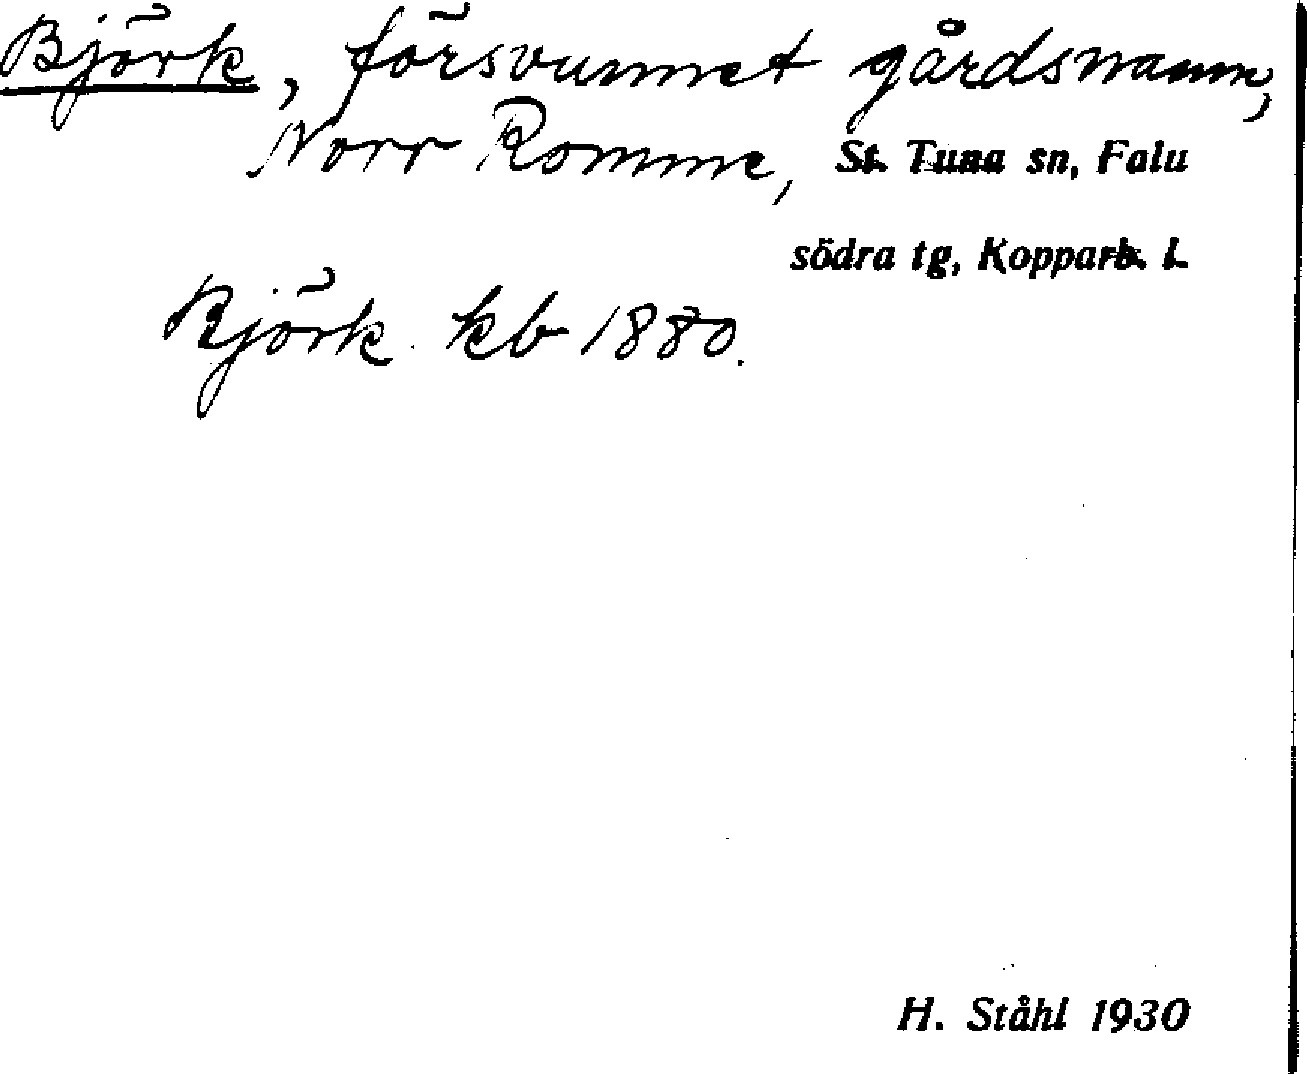 Björk, försvunnet gårdsnamn,
Norr Romme, St. Tuna sn, Falu
södra tg, Kopparb. l.
Björk kb 1880.
H. Ståhl 1930